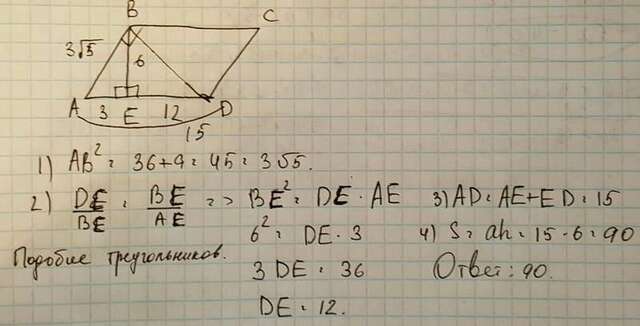 B C
3√5 6
A 3 E 12 D
15
1) AB² = 36+9 = 45 = 3√5.
2) DE/BE = BE/AE => BE² = DE · AE 3) AD = AE+ED = 15
6² = DE · 3 4) S = ah = 15 · 6 = 90
Подобие треугольников. 3DE = 36 Ответ: 90.
DE = 12.